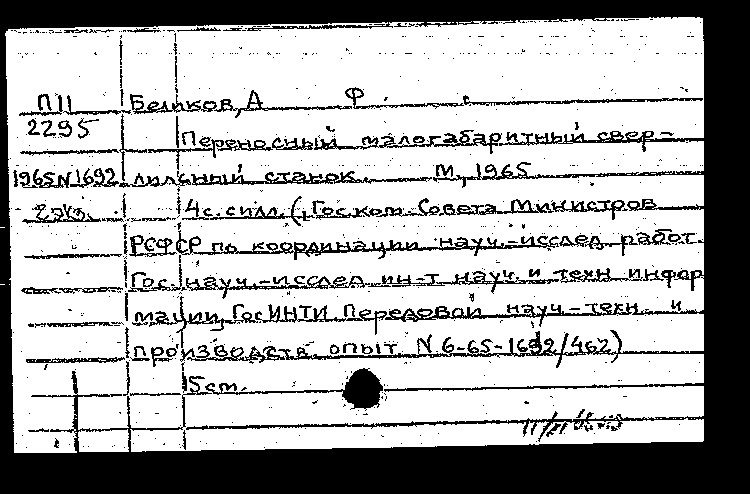 П11 Беликов, А Ф.
2295 Переносный малогабаритный свер-
1965 N1692 лильный станок. М, 1965
2 экз. 4 с. с илл. (, Гос. ком. Совета Министров
РСФСР по координации науч.-исслед. работ.
Гос. науч.-исслед ин-т науч. и техн инфор
мации, ГосИНТИ. Передовой науч-техн. и
производств. опыт. N 6-65-1692/462)
15 cm.